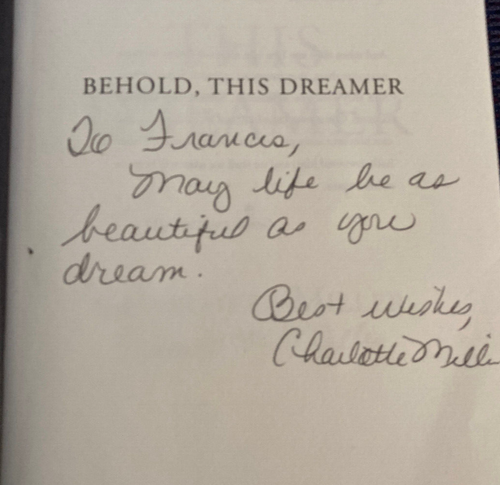 BEHOLD, THIS DREAMER
To Francis,
May life be as
beautiful as you
dream.
Best wishes,
Charlotte Mille